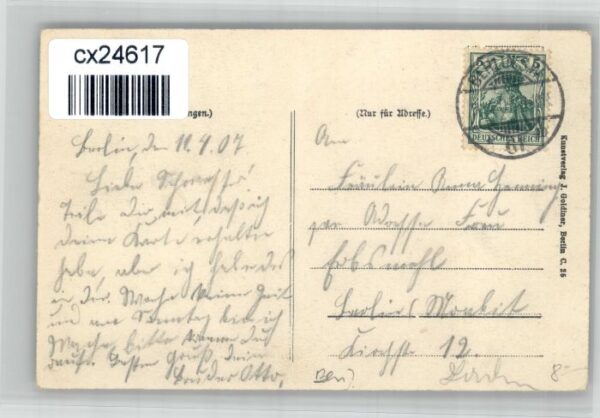 cx24617
ngen.)
(Nur für Adresse.)
DEUTSCHES REICH
Kunstverlag J. Goldiner, Berlin C. 25
Berlin, den 11.4.07
Liebe Schwester!
Teile dir mit, daß ich
deine Karte erhalten
habe, aber ich habe des
in der Woche keine Zeit
und am Sonntag bin ich
Wache, bitte komme du
raus. Besten Gruß, dein
Bruder Otto.
An
Fräulein Anna
per Adresse Frau
Berlin Moabit
Kirchstr 12.
Laden
8-